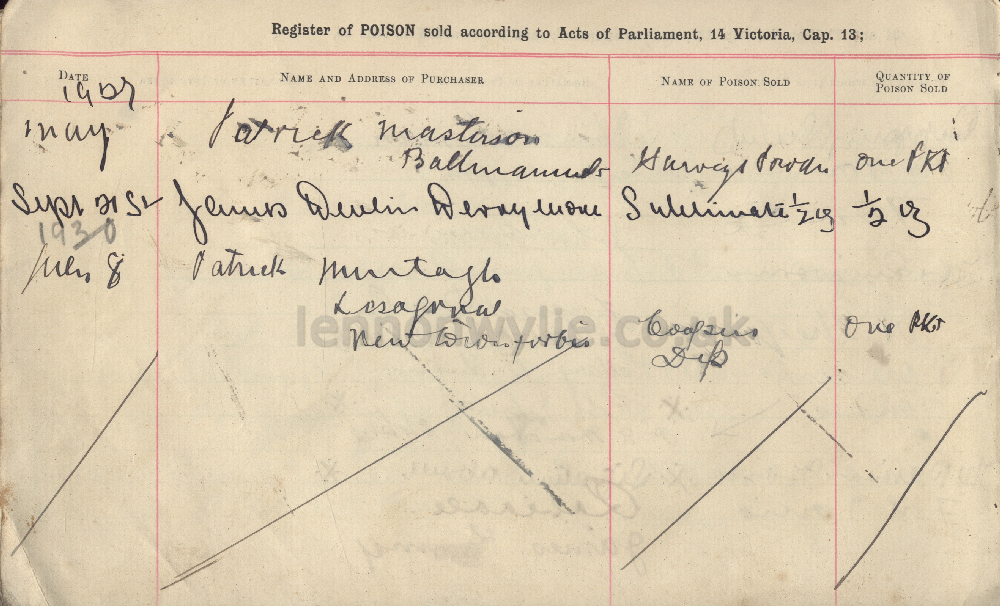 Register of POISON sold according to Acts of Parliament, 14 Victoria, Cap. 13;
DATE NAME AND ADDRESS OF PURCHASER NAME OF POISON SOLD QUANTITY OF POISON SOLD
May Patrick Masterson
Harveys Powder one PKt
Sept 21st James Devlin Derrymore Sublimate ½ oz ½ oz
1930
8 Patrick Murtagh
Lisagonal
New town forbis Coopers one PKt
Dip
lennonwylie.co.uk